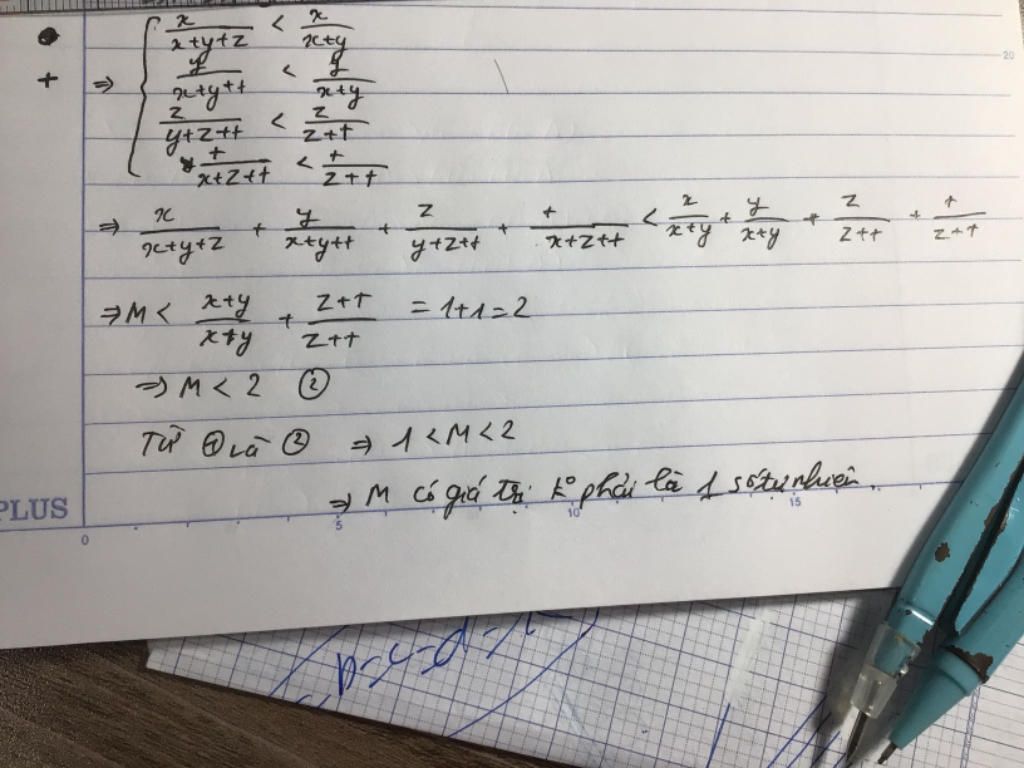 x/(x+y+z) < x/(x+y)
+ ⇒ y/(x+y+t) < y/(x+y)
z/(y+z+t) < z/(z+t)
t/(x+z+t) < t/(z+t)
⇒ x/(x+y+z) + y/(x+y+t) + z/(y+z+t) + t/(x+z+t) < x/(x+y) + y/(x+y) + z/(z+t) + t/(z+t)
⇒ M < (x+y)/(x+y) + (z+t)/(z+t) = 1+1=2
⇒ M < 2 ②
Từ ① và ② ⇒ 1 < M < 2
⇒ M có giá trị kº phải là 1 số tự nhiên.
PLUS
0 5 10 15
20